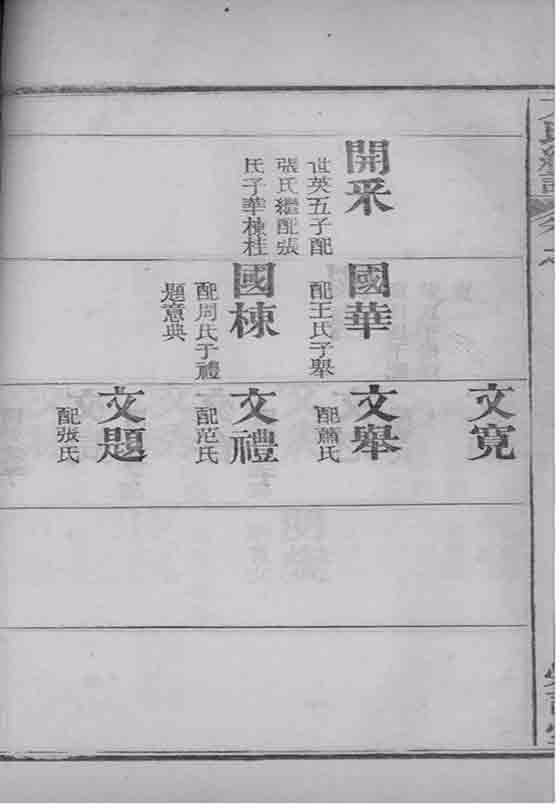 開采
世英五子配
張氏繼配張
氏子華棟桂
國華
配王氏子舉
國棟
配周氏子禮
題意典
文寬
文舉
配蕭氏
文禮
配范氏
文題
配張氏